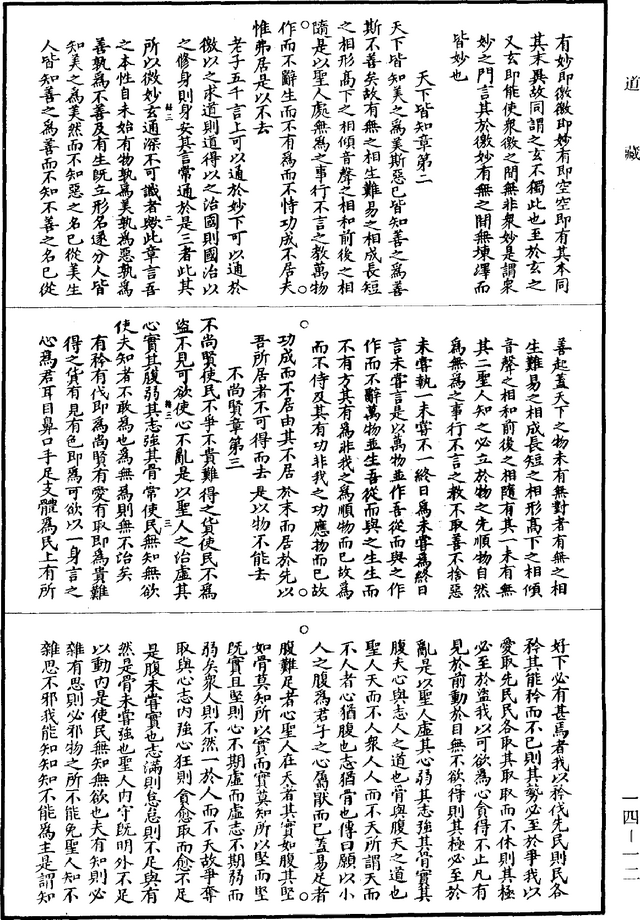 道藏
有妙即徼徼即妙有即空空即有其本同
其末異故同謂之玄不獨此也至於玄之
又玄即能使衆徼之間無非衆妙是謂衆
妙之門言其於徼妙有無之間無揀擇而
皆妙也
天下皆知章第二
天下皆知美之為美斯惡已皆知善之為善
斯不善矣故有無之相生難易之相成長短
之相形高下之相傾音聲之相和前後之相
隨是以聖人處無為之事行不言之教萬物
作而不辭生而不有為而不恃功成不居夫
惟弗居是以不去
老子五千言上可以通於妙下可以通於
徼以之求道則道得以之治國則國治以
之修身則身安其言常通於是三者此其
所以微妙玄通深不可識者歟此章言吾
之本性自未始有物孰為美孰為惡孰為
善孰為不善及有生既立形名遂分人皆
知美之為美然而不知惡之名已從美生
人皆知善之為善而不知不善之名已從
善起蓋天下之物未有無對者有無之相
生難易之相成長短之相形高下之相傾
音聲之相和前後之相隨有其一未有無
其二聖人知之必立於物之先順物自然
為無為之事行不言之教不取善不捨惡
未嘗執一未嘗不一終日為未嘗為終日
言未嘗言是以萬物並作吾從而與之作
作而不辭萬物並生吾從而與之生生而
不有方其有為非我之為順物而已故為
而不恃及其有功非我之功應物而已故
功成而不居由其不居於末而居於先以
吾所居者不可得而去是以物不能去
不尚賢章第三
不尚賢使民不爭不貴難得之貨使民不為
盜不見可欲使心不亂是以聖人之治虛其
心實其腹弱其志強其骨常使民無知無欲
使夫知者不敢為也為無為則無不治矣
有矜有伐即為尚賢有愛有取即為貴難
得之貨有見有色即為可欲以一身言之
心為君耳目鼻口手足支體為民上有所
好下必有甚焉者我以矜伐先民則民各
矜其能矜而不已則其勢必至於爭我以
愛取先民民各取其取取而不休則其極
必至於盜我以可欲為心貪得不止凡有
見於前動於目無不欲得則其極必至於
亂是以聖人虛其心弱其志強其骨實其
腹夫心與志人之道也骨與腹天之道也
聖人天而不人衆人人而不天所謂天而
不人者心猶腹也志猶骨也傳曰願以小
人之腹為君子之心屬厭而已蓋易足者
腹難足者心聖人在天者其實如腹其堅
如骨莫知所以實而實莫知所以堅而堅
既實且堅則心不期虛而虛志不期弱而
弱矣衆人則不然一於人而不天故爭奪
取與心志內強心狂則貪愈取而愈不足
是腹未嘗實也志滿則怠怠則不足與有
然是骨未嘗強也聖人內守既明外不足
以動內是使民無知無欲也夫有知則必
雜有思則必邪物之所不能免聖人知不
雜思不邪我能知知知不能為主是謂知
一四-一二